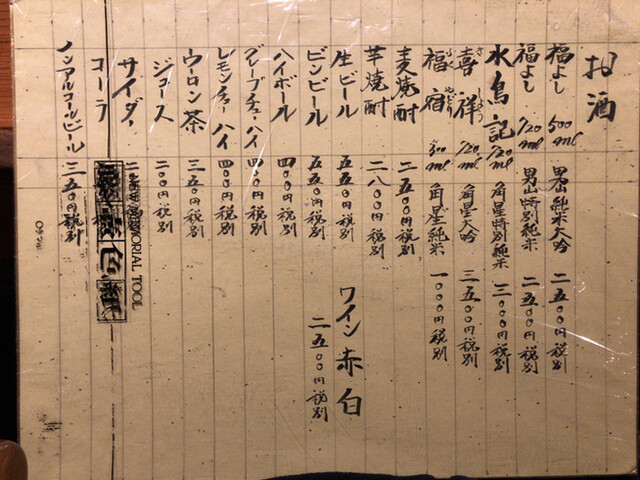 お酒
福よし 500ml 男山純米大吟 二五〇〇円税別
福よし 720ml 男山特別純米 二五〇〇円税別
水鳥記 720ml 角星特別純米 三〇〇〇円税別
喜祥 720ml 角星大吟 三五〇〇円税別
福宿 300ml 角星純米 一〇〇〇円税別
麦焼酎 二五〇〇円税別
芋焼酎 二八〇〇円税別
生ビール 五五〇円税別
ビンビール 五五〇円税別
ワイン 赤 白
二五〇〇円税別
ハイボール 四〇〇円税別
グレープチューハイ 四〇〇円税別
レモンチューハイ 四〇〇円税別
ウーロン茶 三五〇円税別
ジュース 二〇〇円税別
サイダー 二
コーラ
MEMORIAL TOOL
ノンアルコールビール 三五〇円税別